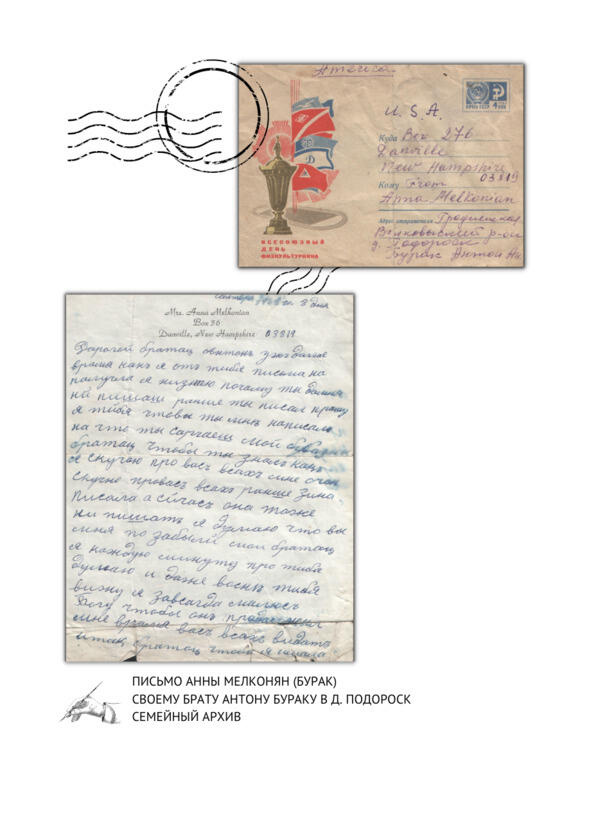 America
U. S. A.
ПОЧТА СССР 4 КОП
Куда Box 276
Danville
New Hampshire
03819
Кому From
Anna Melkonian
Адрес отправителя Гродненская
Волковысский р-он
д. Подороск
Бурак Антон
ВСЕСОЮЗНЫЙ
ДЕНЬ
ФИЗКУЛЬТУРНИКА
3 дня
Mrs. Anna Melkonian
Box 36
Danville, New Hampshire 03819
Дарогой братац
время какъ я отъ тибя письма на
палучела я низнаю почаму ты
ни пишаш раньше ты писал прашу
я тибя чтобы ты мнѣ написалъ
на что ты мой
братац чтобы ты зналъ какъ
я скучаю про васъ всѣхъ мнѣ очен
скучно провасъ всѣхъ раньше Зина
писала а сйчасъ она тоже
ни пишать я думаю что вы
миня по забыли мой братац
я каждую минуту про тибя
думаю и даже воснѣ тибя
вижу я завсягда малюсъ
Богу чтобы онъ
мнѣ время васъ всѣхъ видать
итак братац чтобы я
ПИСЬМО АННЫ МЕЛКОНЯН (БУРАК)
СВОЕМУ БРАТУ АНТОНУ БУРАКУ В Д. ПОДОРОСК
СЕМЕЙНЫЙ АРХИВ